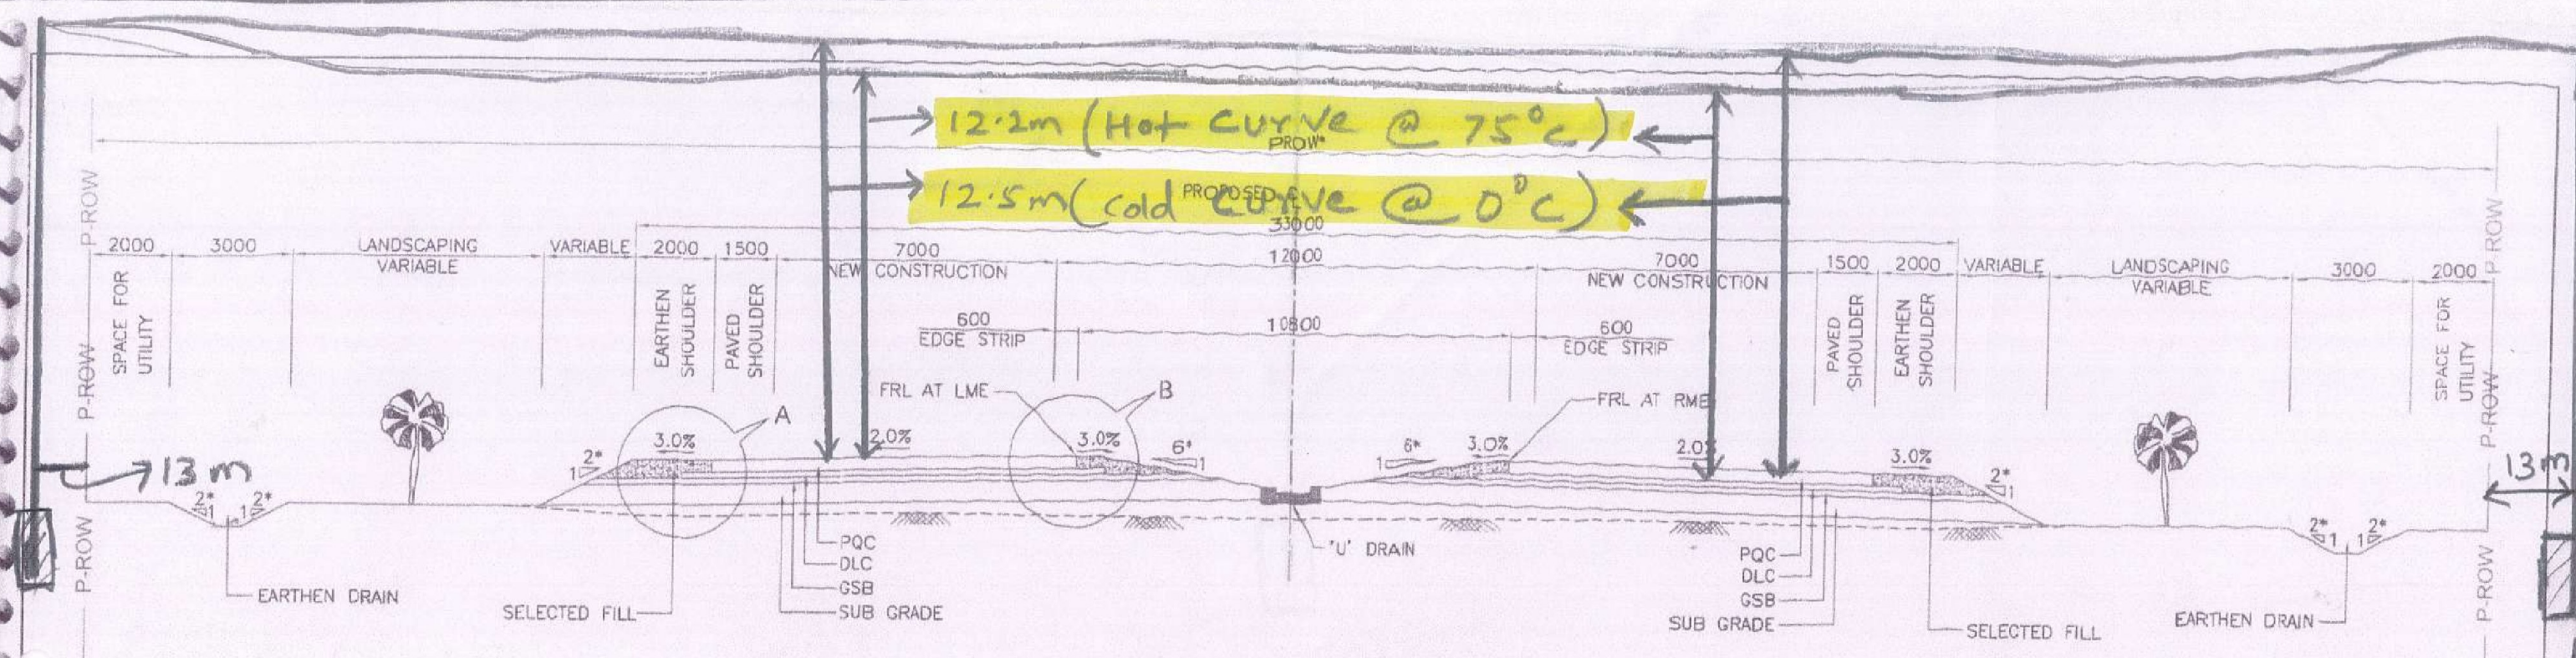 12.2m (Hot Curve @ 75°c)
PROW*
12.5m (Cold Curve @ 0°C)
33000
P-ROW
2000
3000
LANDSCAPING
VARIABLE
VARIABLE
2000
1500
7000
NEW CONSTRUCTION
12000
7000
NEW CONSTRUCTION
1500
2000
VARIABLE
LANDSCAPING
VARIABLE
3000
2000
P-ROW
SPACE FOR
UTILITY
EARTHEN
SHOULDER
PAVED
SHOULDER
600
EDGE STRIP
10800
600
EDGE STRIP
PAVED
SHOULDER
EARTHEN
SHOULDER
SPACE FOR
UTILITY
P-ROW
P-ROW
FRL AT LME
B
FRL AT RME
A
3.0%
2.0%
3.0%
6*
1
6*
1
3.0%
3.0%
2*
1
2*
1
13m
13m
2*
1
2*
1
2*
1
2*
1
P-ROW
P-ROW
PQC
DLC
GSB
SUB GRADE
'U' DRAIN
PQC
DLC
GSB
SUB GRADE
EARTHEN DRAIN
SELECTED FILL
SELECTED FILL
EARTHEN DRAIN